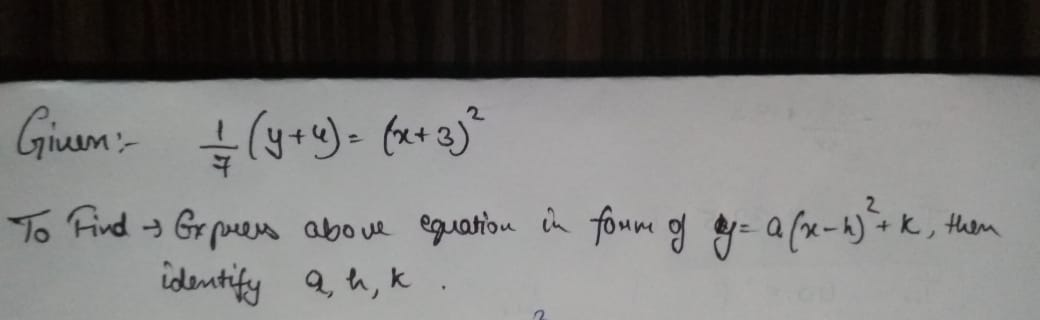 Given:- 1/7 (y+4) = (x+3)²
To Find → Express above equation in form of y = a(x-h)² + k, then
identify a, h, k .
2